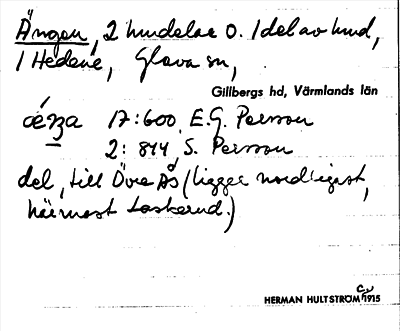 Ängen, 2 hundelar o. 1 del av hund,
1 Hedene, Glava sn,
Gillbergs hd, Värmlands län
17:600, E.G. Persson
2:844, S. Persson
del, till Övre Ås (ligger nordligast,
närmast Laskerud.)
HERMAN HULTSTRÖM 1915